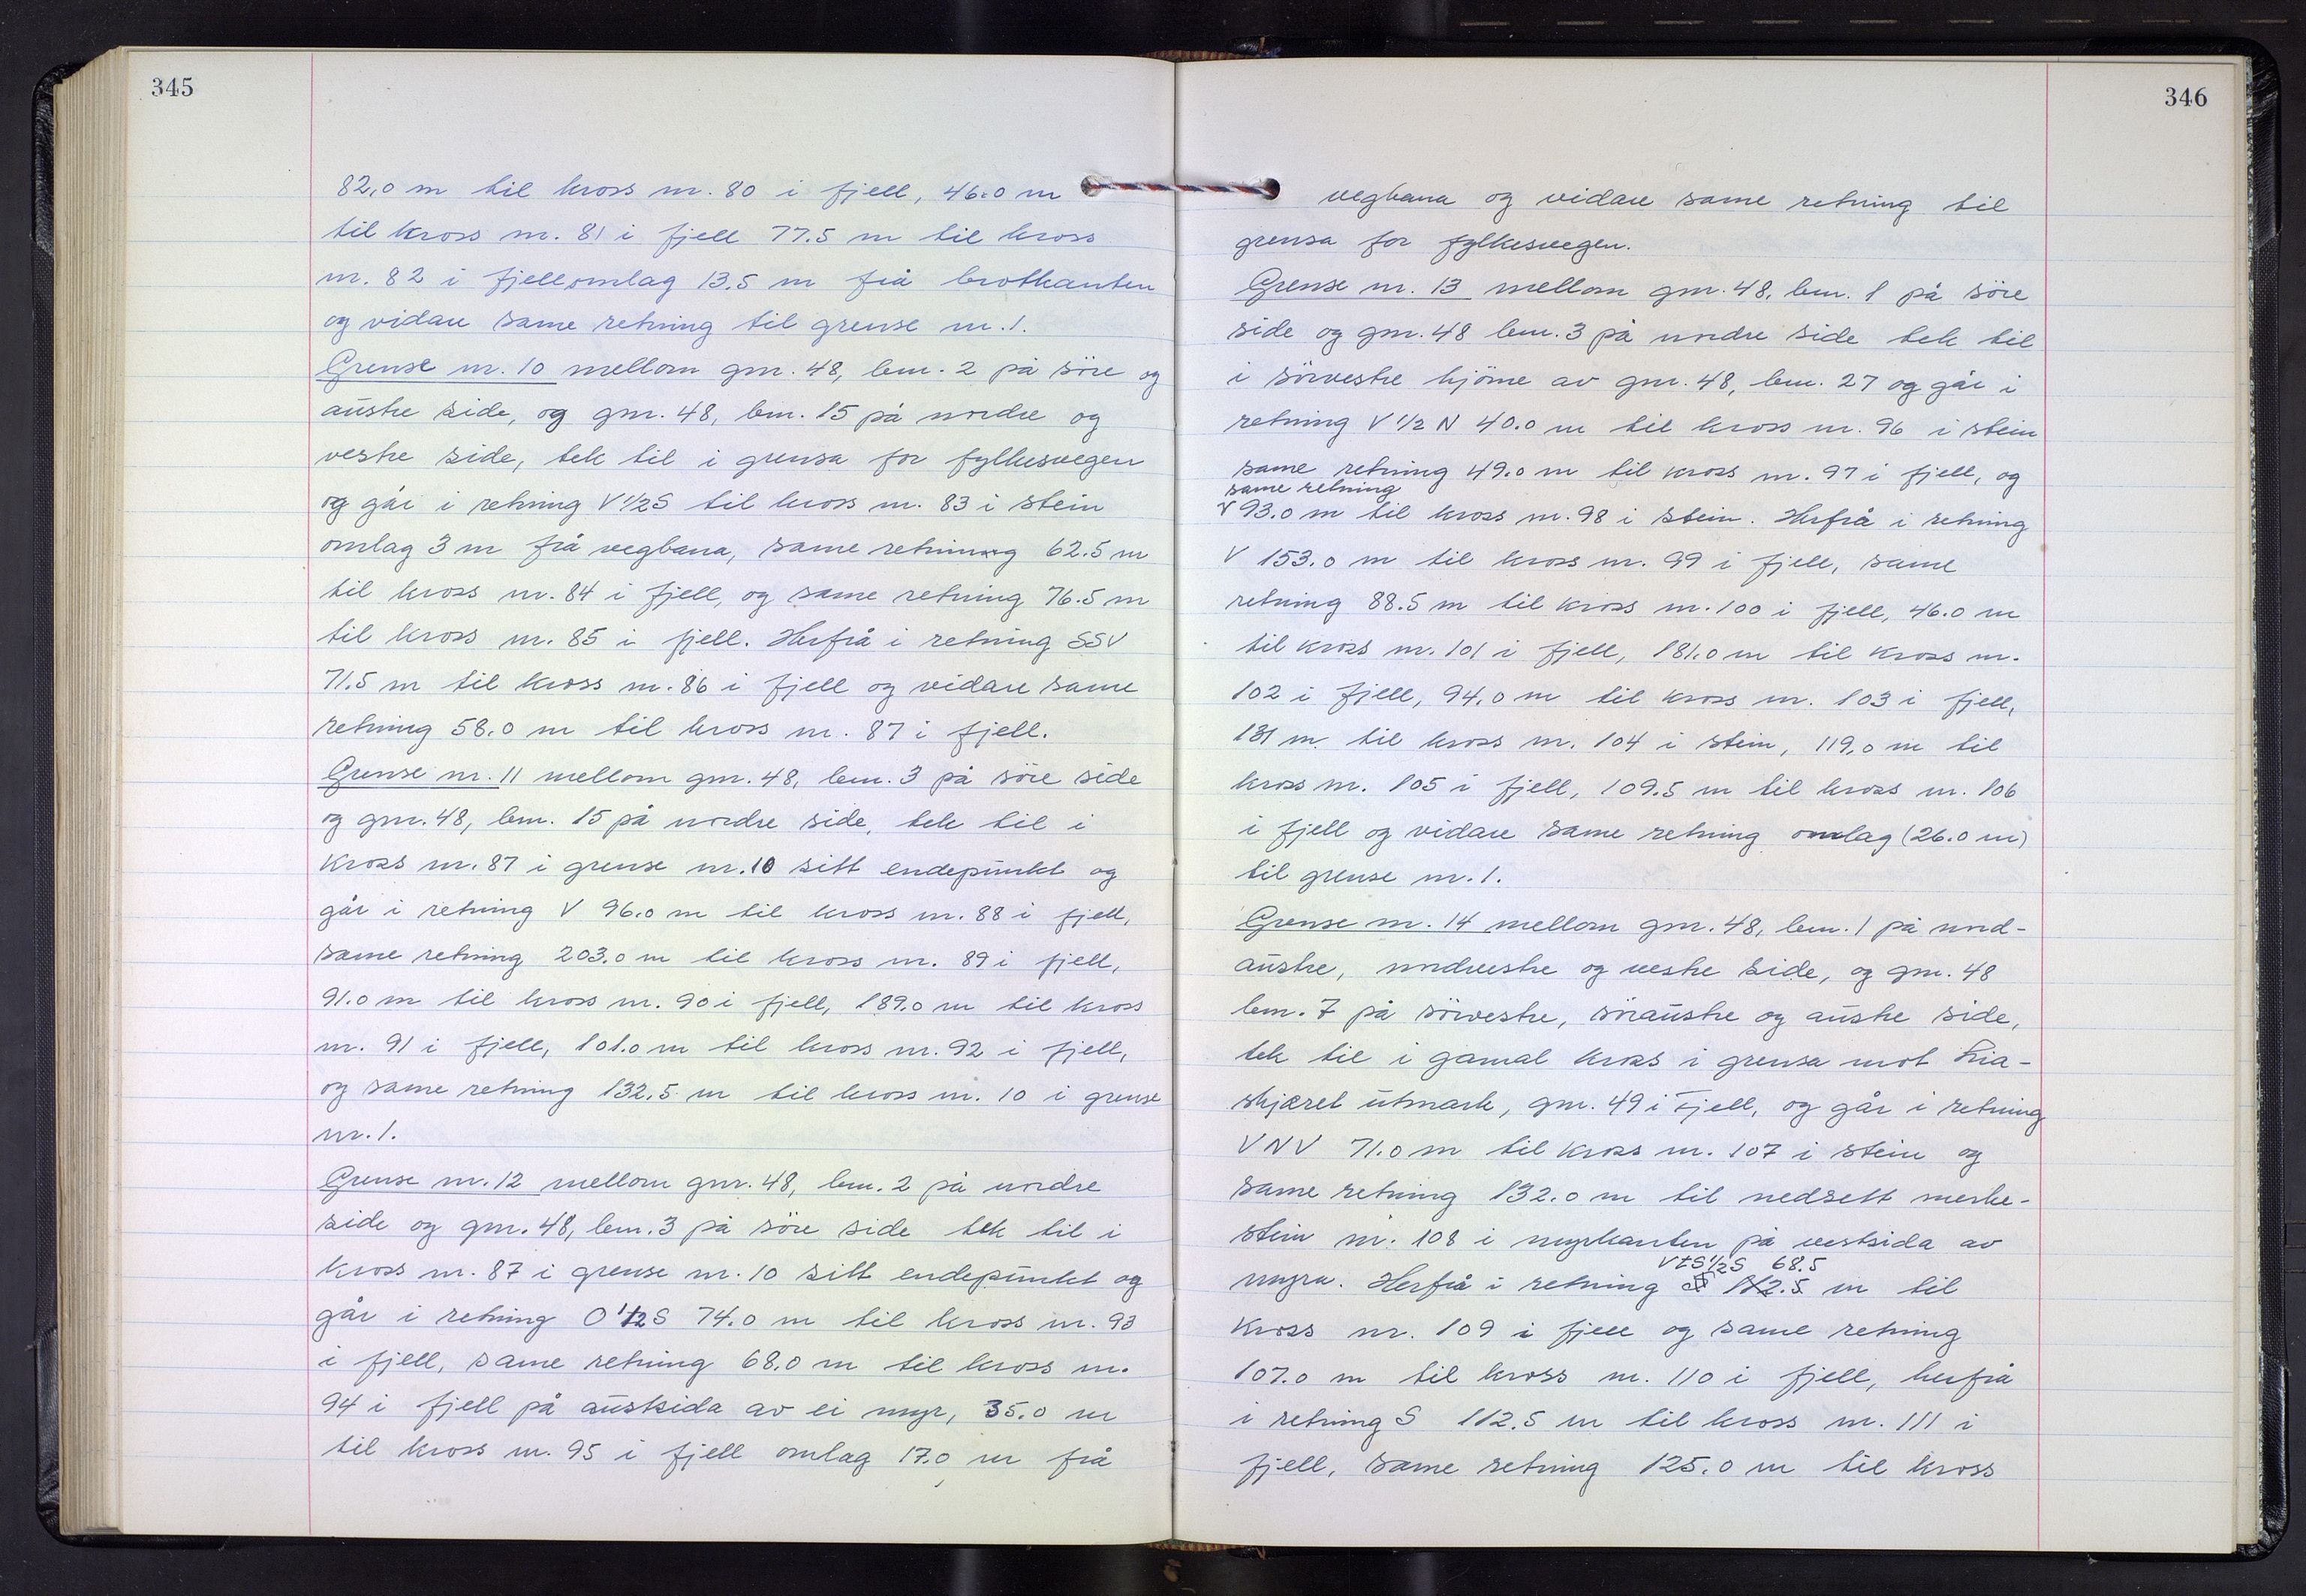 345
82,0 m til kross nr. 80 i fjell, 46.0 m
til kross nr. 81 i fjell 77.5 m til kross
nr. 82 i fjell omlag 13.5 m frå brotkanten
og vidare same retning til grense nr. 1.
Grense nr. 10 mellom gnr. 48, bnr. 2 på söre og
austre side, og gnr. 48, bnr. 15 på nordre og
vestre side, tek til i grensa for fylkesvegen
og går i retning V 1/2 S til kross nr. 83 i stein
omlag 3 m frå vegbana, same retning 62.5 m
til kross nr. 84 i fjell, og same retning 76.5 m
til kross nr. 85 i fjell. Herfrå i retning SSV
71.5 m til kross nr. 86 i fjell og vidare same
retning 58.0 m til kross nr. 87 i fjell.
Grense nr. 11 mellom gnr. 48, bnr. 3 på söre side
og gnr. 48, bnr. 15 på nordre side, tek til i
kross nr. 87 i grense nr. 10 sitt endepunkt og
går i retning V 96.0 m til kross nr. 88 i fjell,
same retning 203.0 m til kross nr. 89 i fjell,
91.0 m til kross nr. 90 i fjell, 189.0 m til kross
nr. 91 i fjell, 101.0 m til kross nr. 92 i fjell,
og same retning 132.5 m til kross nr. 10 i grense
nr. 1.
Grense nr. 12 mellom gnr. 48, bnr. 2 på nordre
side og gnr. 48, bnr. 3 på söre side tek til i
kross nr. 87 i grense nr. 10 sitt endepunkt og
går i retning O 1/2 S 74.0 m til kross nr. 93
i fjell, same retning 68.0 m til kross nr.
94 i fjell på austsida av ei myr, 35.0 m
til kross nr. 95 i fjell omlag 17.0 m frå
346
vegbana og vidare same retning til
grensa for fylkesvegen.
Grense nr. 13 mellom gnr. 48, bnr. 1 på söre
side og gnr. 48 bnr. 3 på nordre side tek til
i sörvestre hjörne av gnr. 48, bnr. 27 og går i
retning V 1/2 N 40.0 m til kross nr. 96 i stein
same retning 49.0 m til kross nr. 97 i fjell, og
same retning
V 93.0 m til kross nr. 98 i stein. Herfrå i retning
V 153.0 m til kross nr. 99 i fjell, same
retning 88.5 m til kross nr. 100 i fjell, 46.0 m
til kross nr. 101 i fjell, 181.0 m til kross nr.
102 i fjell, 94.0 m til kross nr. 103 i fjell,
131 m til kross nr. 104 i stein, 119,0 m til
kross nr. 105 i fjell, 109.5 m til kross nr. 106
i fjell og vidare same retning omlag (26.0 m)
til grense nr. 1.
Grense nr. 14 mellom gnr. 48, bnr. 1 på nord-
austre, nordvestre og vestre side, og gnr. 48
bnr. 7 på sörvestre, söraustre og austre side,
tek til i gamal kross i grensa mot Lia-
skjæret utmark, gnr. 49 i fjell, og går i retning
VNV 71.0 m til kross nr. 107 i stein og
same retning 132.0 m til nedsett merke-
stein nr. 108 i myrkanten på vestsida av
VtS 1/2 S 68.5
myra. Herfrå i retning S 112.5 m til
kross nr. 109 i fjell og same retning
107.0 m til kross nr. 110 i fjell, herfrå
i retning S 112.5 m til kross nr. 111 i
fjell, same retning 125.0 m til kross